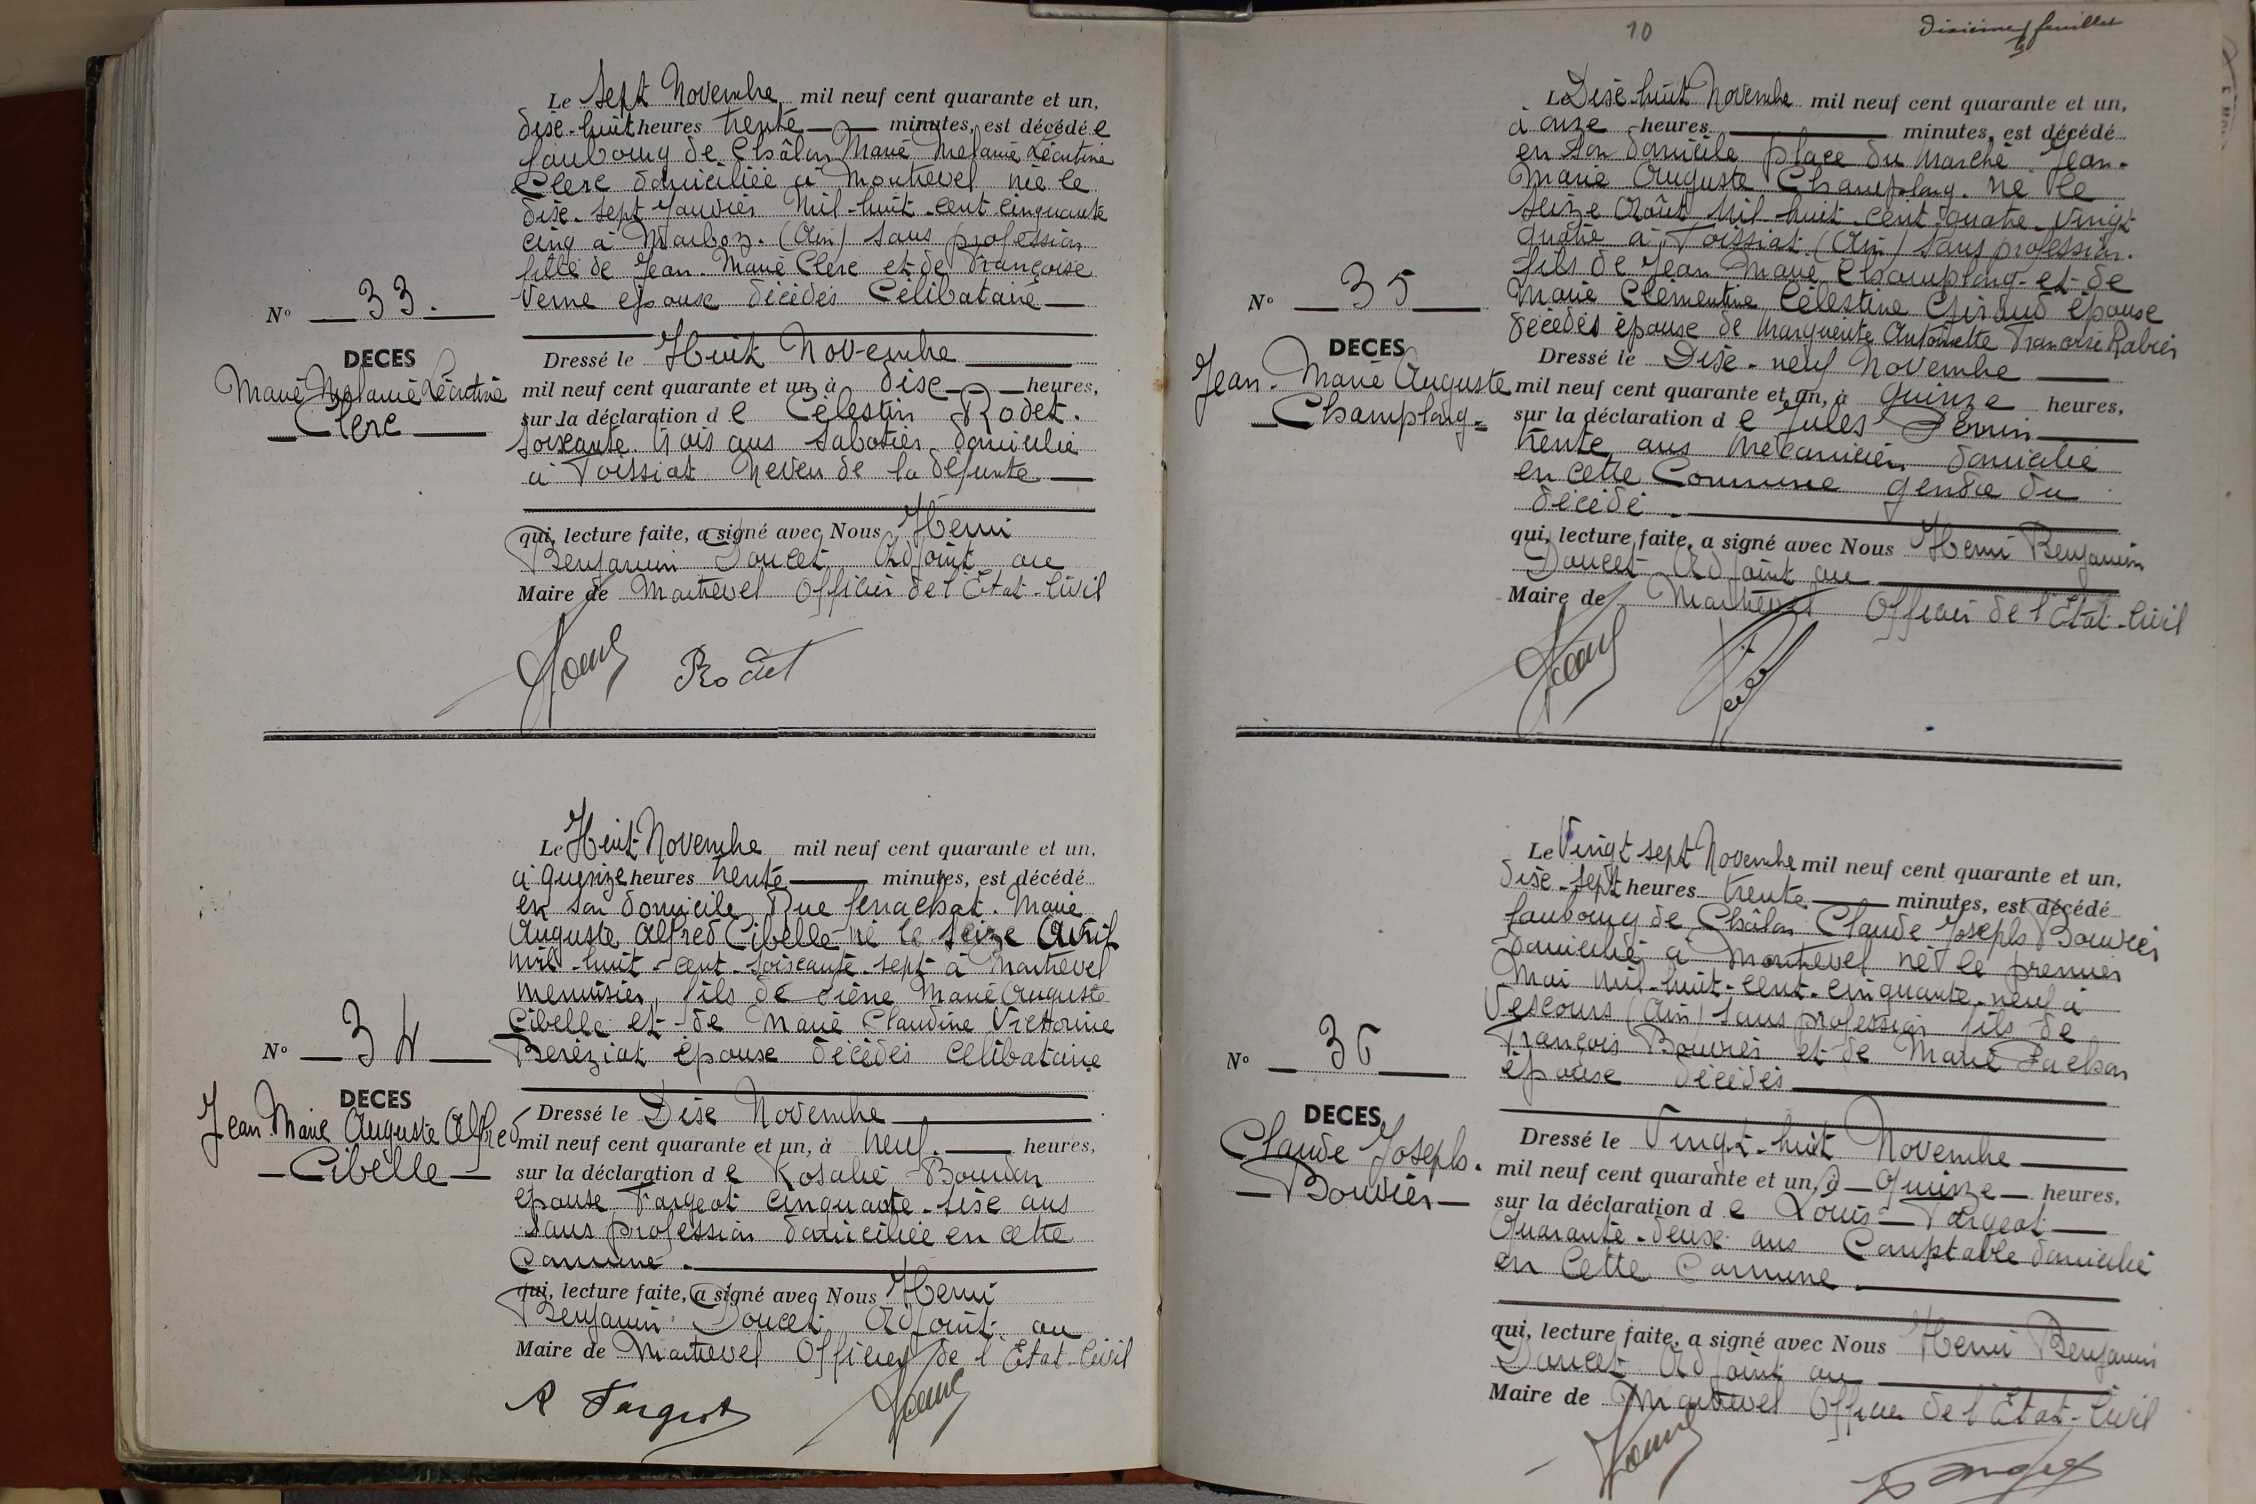 Le Sept Novembre mil neuf cent quarante et un,
dise-huit heures trente minutes, est décédé e
faubourg de Châlon Marie Melanie Léontine
Clerc domiciliée à Montrevel née le
dise-sept Janvier Mil-huit-cent cinquante
cinq à Marboz. (Ain) sans profession
fille de Jean-Marie Clerc et de Françoise
Verne épouse décédés Célibataire
N° 33.
DECES
Marie Melanie Léontine
Clerc
Dressé le Huit Novembre
mil neuf cent quarante et un, à dise heures,
sur la déclaration d e Célestin Rodet.
soixante trois ans sabotier domicilié
à Foissiat Neveu de la défunte
qui, lecture faite, a signé avec Nous Henri
Benjamin Doucet Adjoint au
Maire de Montrevel Officier de l'Etat-Civil
Rodet
Le Huit Novembre mil neuf cent quarante et un,
à quinze heures trente minutes, est décédé
en son domicile Rue Marie
Auguste Alfred Cibelle né le seize Avril
mil-huit-cent-soixante-sept à Montrevel
menuisier, fils de Marie Auguste
Cibelle et de Marie Claudine Victorine
Beréziat épouse décédés celibataire
N° 34
DECES
Jean Marie Auguste Alfred
Cibelle
Dressé le Dise Novembre
mil neuf cent quarante et un, à neuf. heures,
sur la déclaration d e Rosalie Bourdon
épouse Fargeot cinquante-sise ans
sans profession domiciliée en cette
Commune.
qui, lecture faite, a signé avec Nous Henri
Benjamin Doucet Adjoint au
Maire de Montrevel Officier de l'Etat-Civil
R Fargeot
10
Dixième feuillet
Le Dise-huit Novembre mil neuf cent quarante et un,
à onze heures minutes, est décédé
en son domicile place du Marché Jean-
Marie Auguste Champlong. né le
seize Août Mil-huit-cent quatre-vingt
quatre à Foissiat (Ain) sans profession.
fils de Jean Marie Champlong et de
Marie Clémentine Célestine Giraud épouse
décédés épouse de Marguerite Antoinette Francoise Rabier
N° 35
DECES
Jean-Marie Auguste
Champlong
Dressé le Dise-neuf Novembre
mil neuf cent quarante et un, à quinze heures,
sur la déclaration d e Jules Perrin
trente ans mécanicien domicilié
en cette Commune gendre du
décédé.
qui, lecture faite, a signé avec Nous Henri Benjamin
Doucet Adjoint au
Maire de Montrevel Officier de l'Etat-Civil
Le Vingt sept Novembre mil neuf cent quarante et un,
dise-sept heures trente minutes, est décédé
faubourg de Châlon Claude Joseph Bouvier
domicilié à Montrevel né le premier
Mai Mil-huit-cent-cinquante-neuf à
Vescours (Ain) sans profession fils de
François Bouvier et de Marie Pachon
épouse décédés
N° 36
DECES
Claude Joseph.
Bouvier
Dressé le Vingt-huit Novembre
mil neuf cent quarante et un, à quinze heures,
sur la déclaration d e Louis Fargeot
Quarante-deux ans Comptable domicilié
en cette Commune.
qui, lecture faite, a signé avec Nous Henri Benjamin
Doucet Adjoint au
Maire de Montrevel Officier de l'Etat-Civil